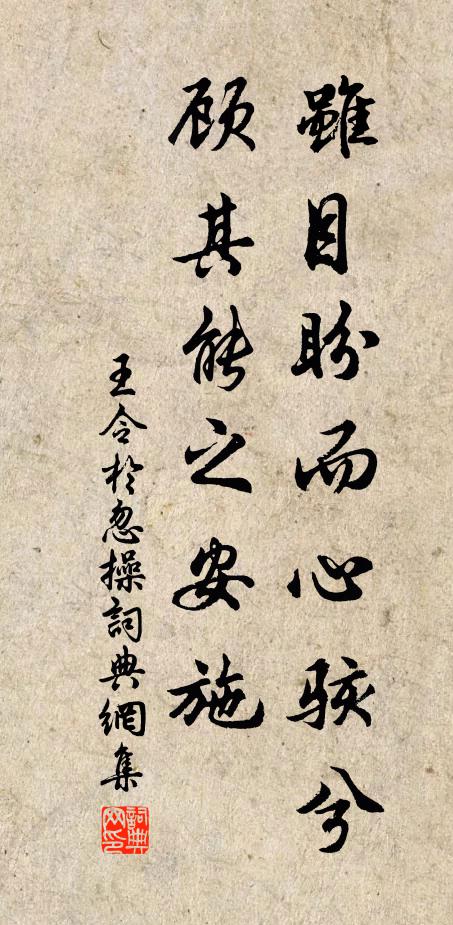 雖目盼而心駭兮
顧其能之安施
王令於忽操詞典網集
詞典网印